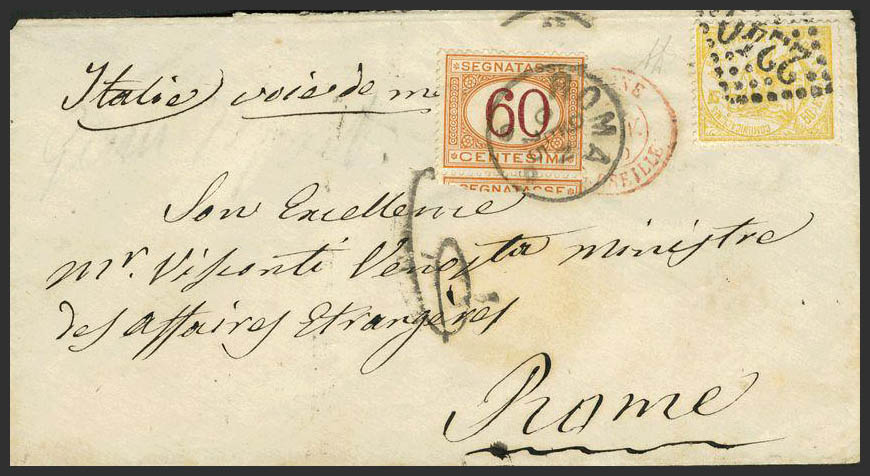 2240
Italie voie de me
SEGNATASSE
60
CENTESIMI
SEGNATASSE
ROMA
Son Excellence
Mr. Visconti Venosta ministre
des affaires Etrangeres
Rome